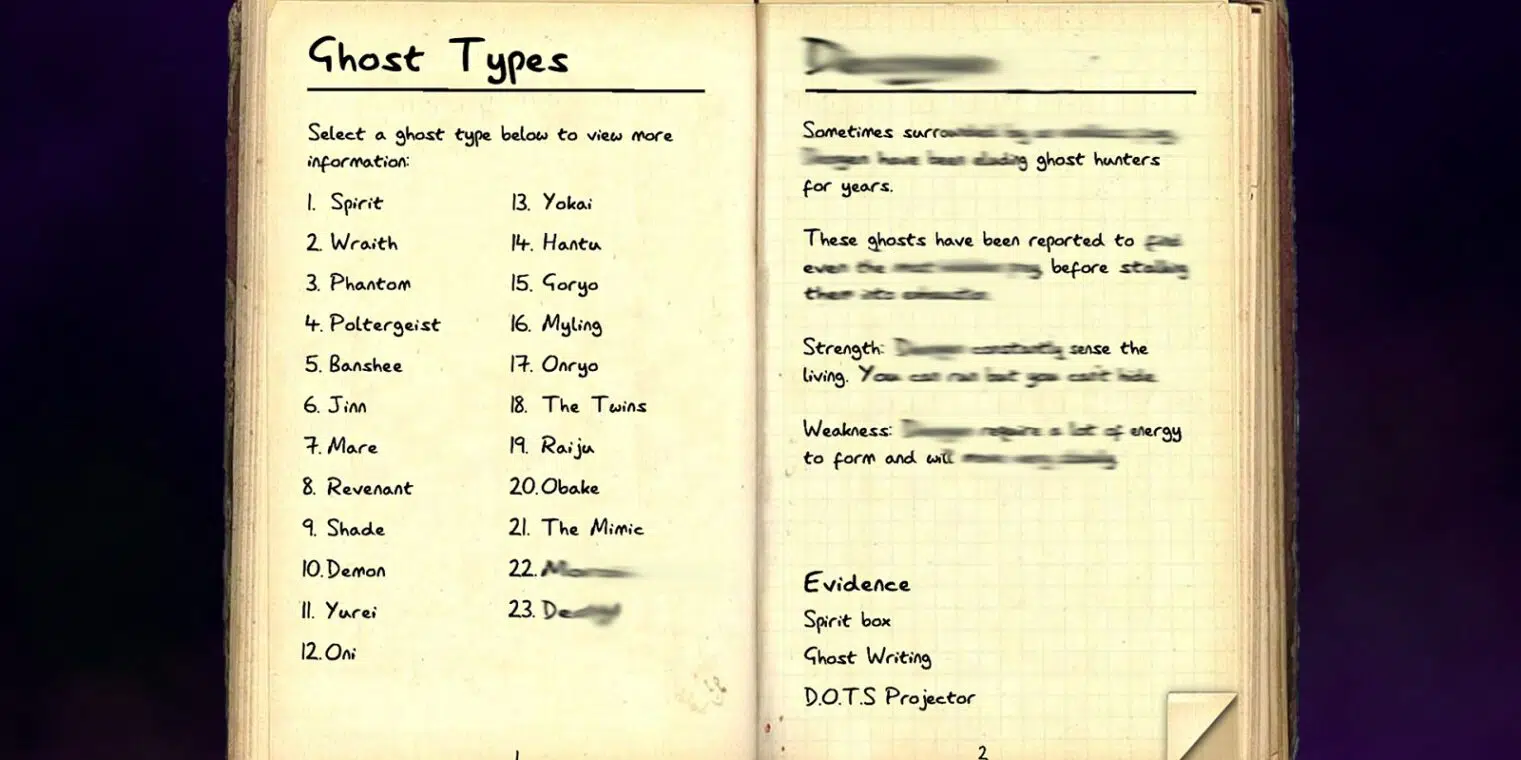 Ghost Types
Select a ghost type below to view more
information:
1. Spirit
2. Wraith
3. Phantom
4. Poltergeist
5. Banshee
6. Jinn
7. Mare
8. Revenant
9. Shade
10. Demon
11. Yurei
12. Oni
13. Yokai
14. Hantu
15. Goryo
16. Myling
17. Onryo
18. The Twins
19. Raiju
20. Obake
21. The Mimic
22.
23.
1
Sometimes
have been eluding ghost hunters
for years.
These ghosts have been reported to
even the before stalking
them into
Strength: constantly sense the
living. You can run but you can't hide.
Weakness: require a lot of energy
to form and will
Evidence
Spirit box
Ghost Writing
D.O.T.S Projector
2